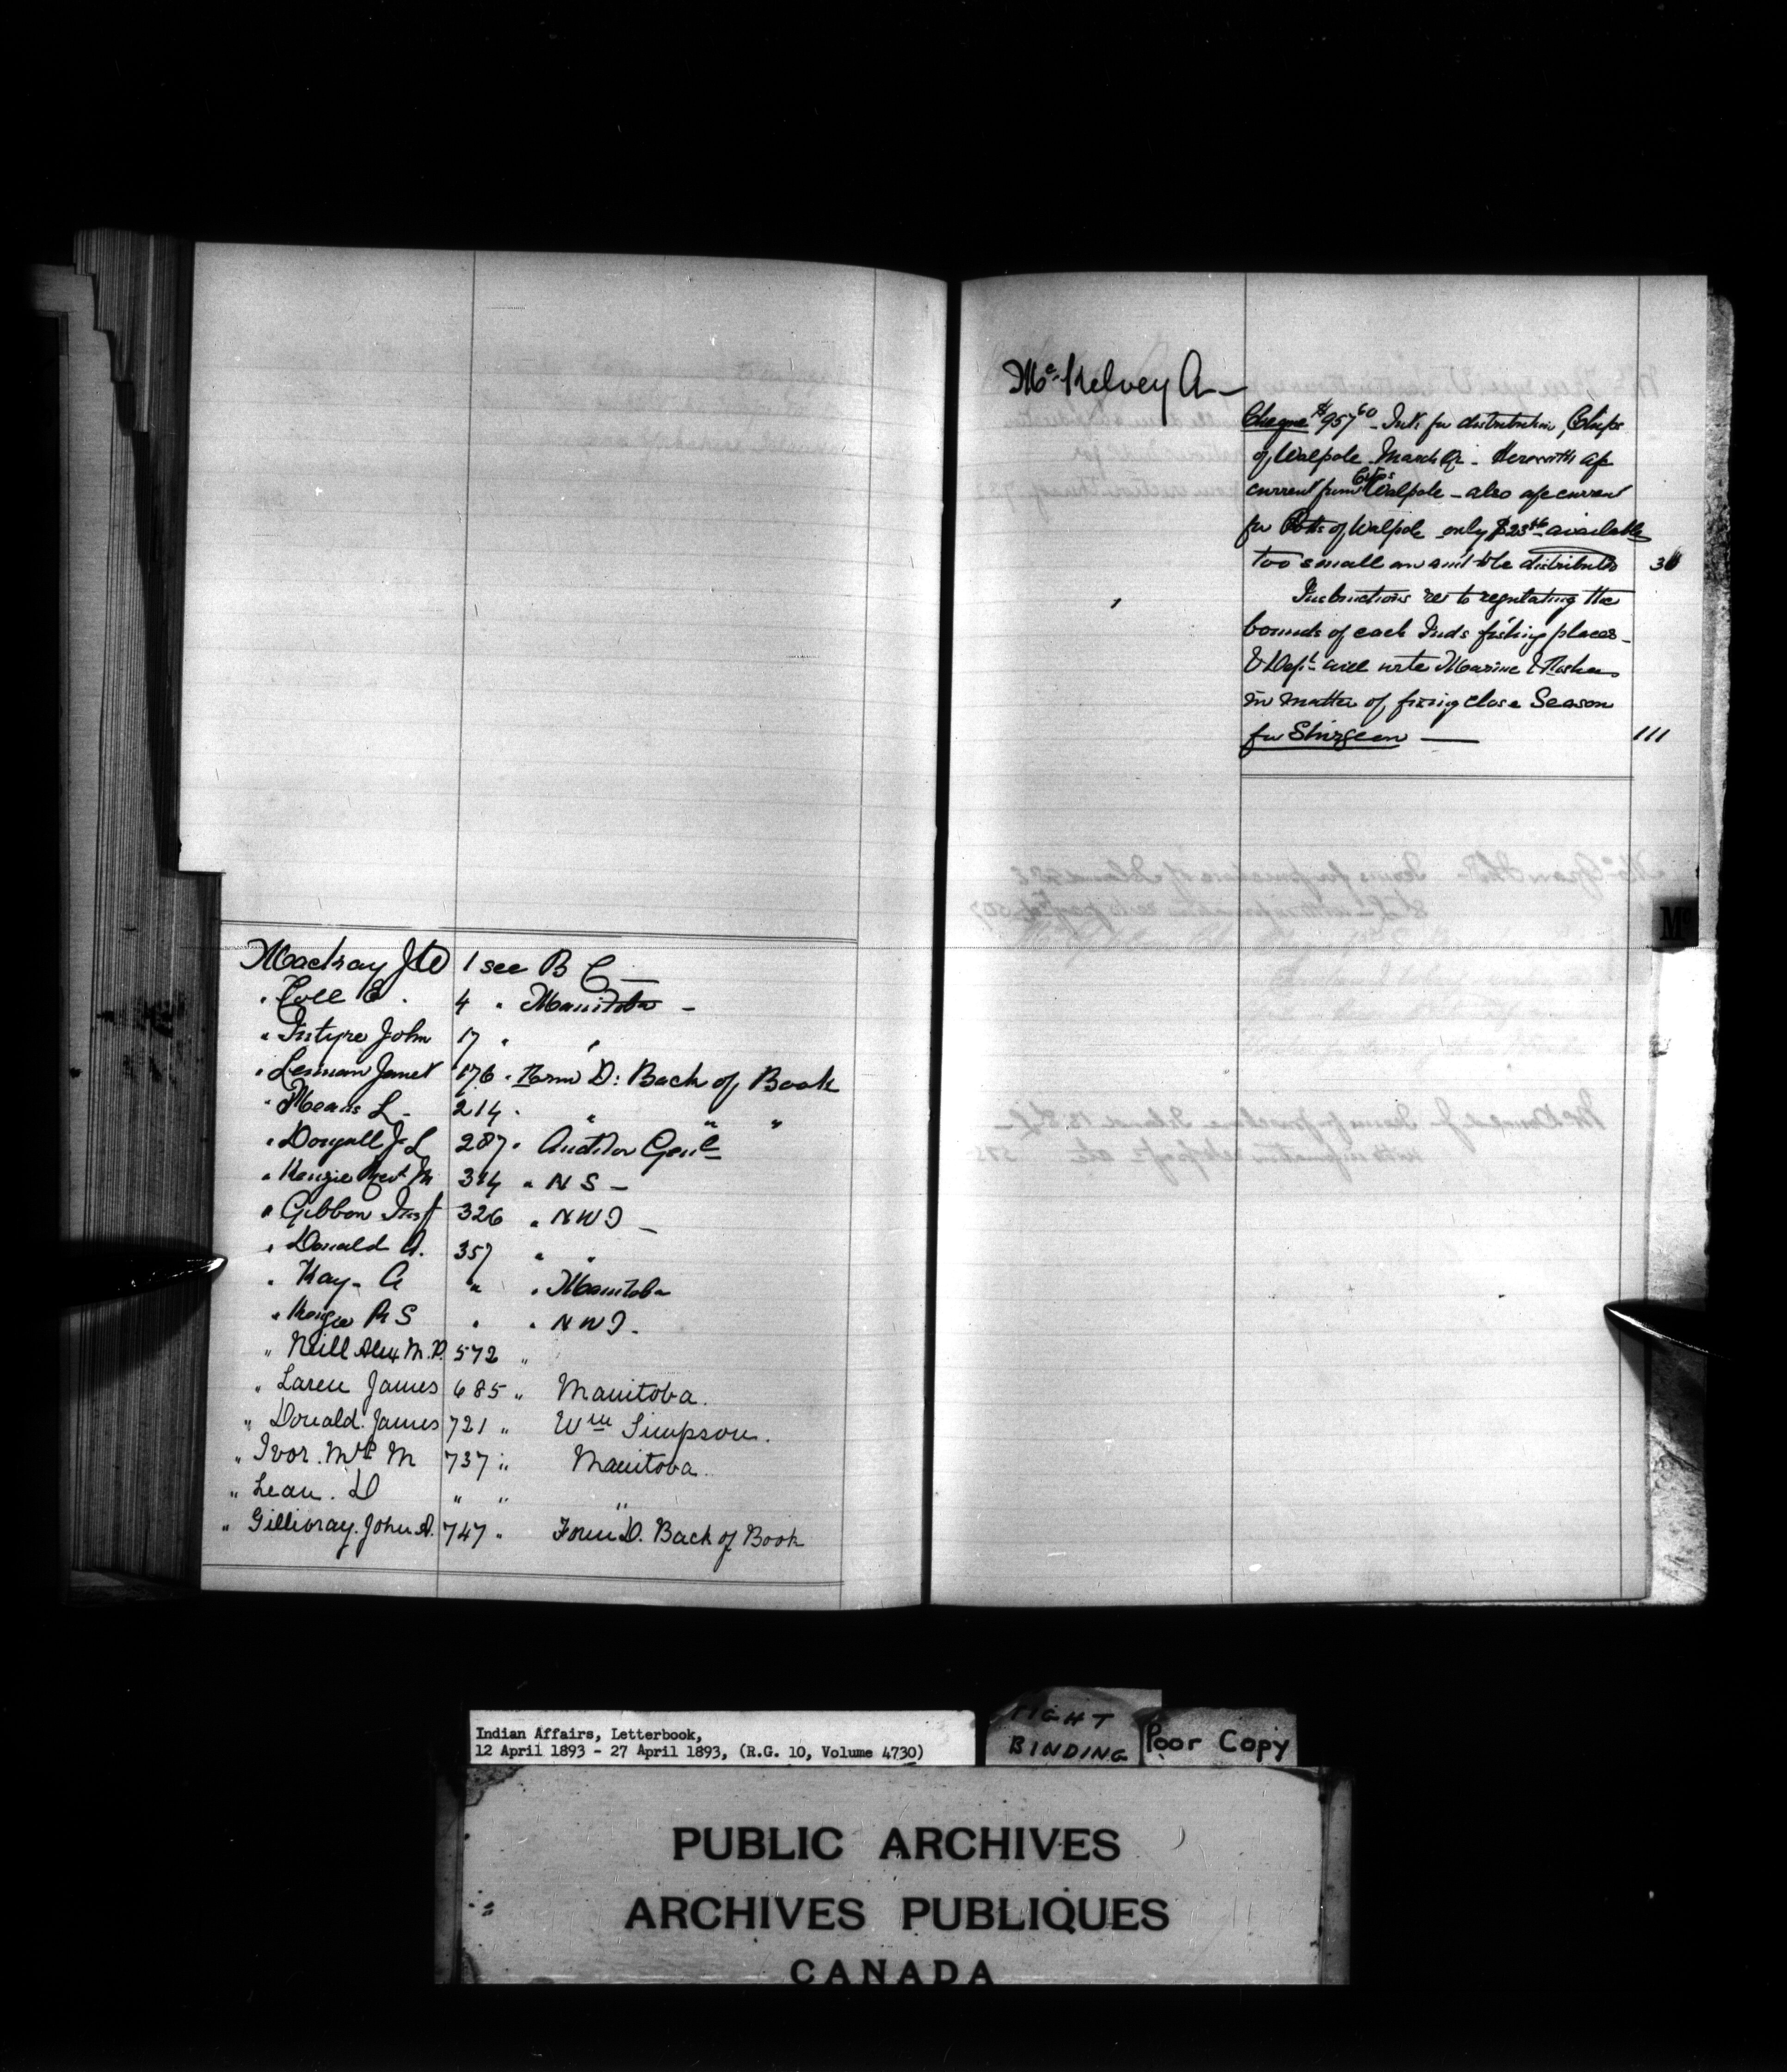 Mackay J W 1 see B C —
" Coll E. 4 " Manitoba -
" Intyre John 17 " "
" Lennan Janet 176 " Form D: Back of Book
" Means L - 214 " " " "
" Dougall J L 287 " Auditor Genl
" Kenzie Revd M 314 " N S -
" Gibbon Insp 326 " N W T -
" Donald A. 357 " "
" Kay - A " " Manitoba
" Kenzie R S " " N W T -
" Neill Alex M.D. 572 "
" Laren James 685 " Manitoba.
" Donald James 721 " Wm Simpson.
" Ivor. Mrs M 737 " Manitoba.
" Lean. D " " "
" Gillivray. John A. 747 " Form D. Back of Book
Mc Kelvey A —
Cheque $957 60 - Int: for distribution, Chips
of Walpole March Qr - Herewith a/c
current from Chips Walpole - also a/c current
for Potts of Walpole only $23 available
too small an amt to be distributed 36
Instructions re to regulating the
bounds of each Inds fishing places -
& Dept will write Marine & Fisheries
in matter of fixing close Season
for Sturgeon — 111
Mc
Indian Affairs, Letterbook,
12 April 1893 - 27 April 1893, (R.G. 10, Volume 4730)
TIGHT
BINDING
Poor Copy
PUBLIC ARCHIVES
ARCHIVES PUBLIQUES
CANADA